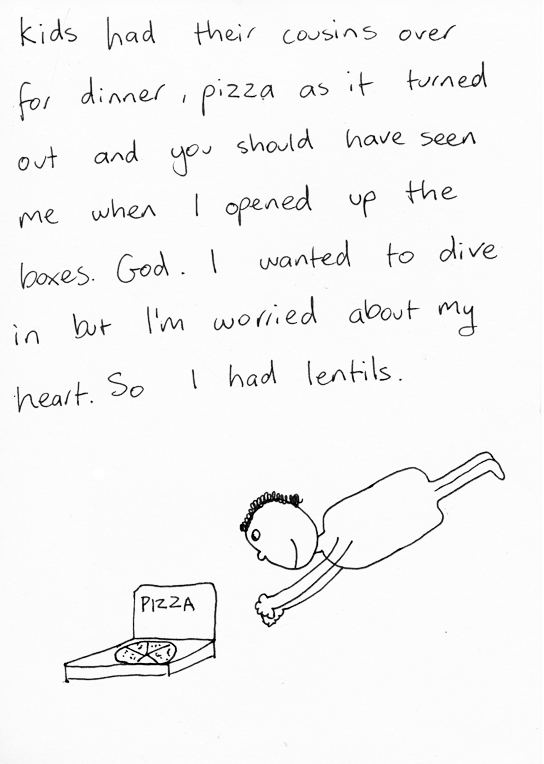 kids had their cousins over
for dinner, pizza as it turned
out and you should have seen
me when I opened up the
boxes. God. I wanted to dive
in but I'm worried about my
heart. So I had lentils.
PIZZA